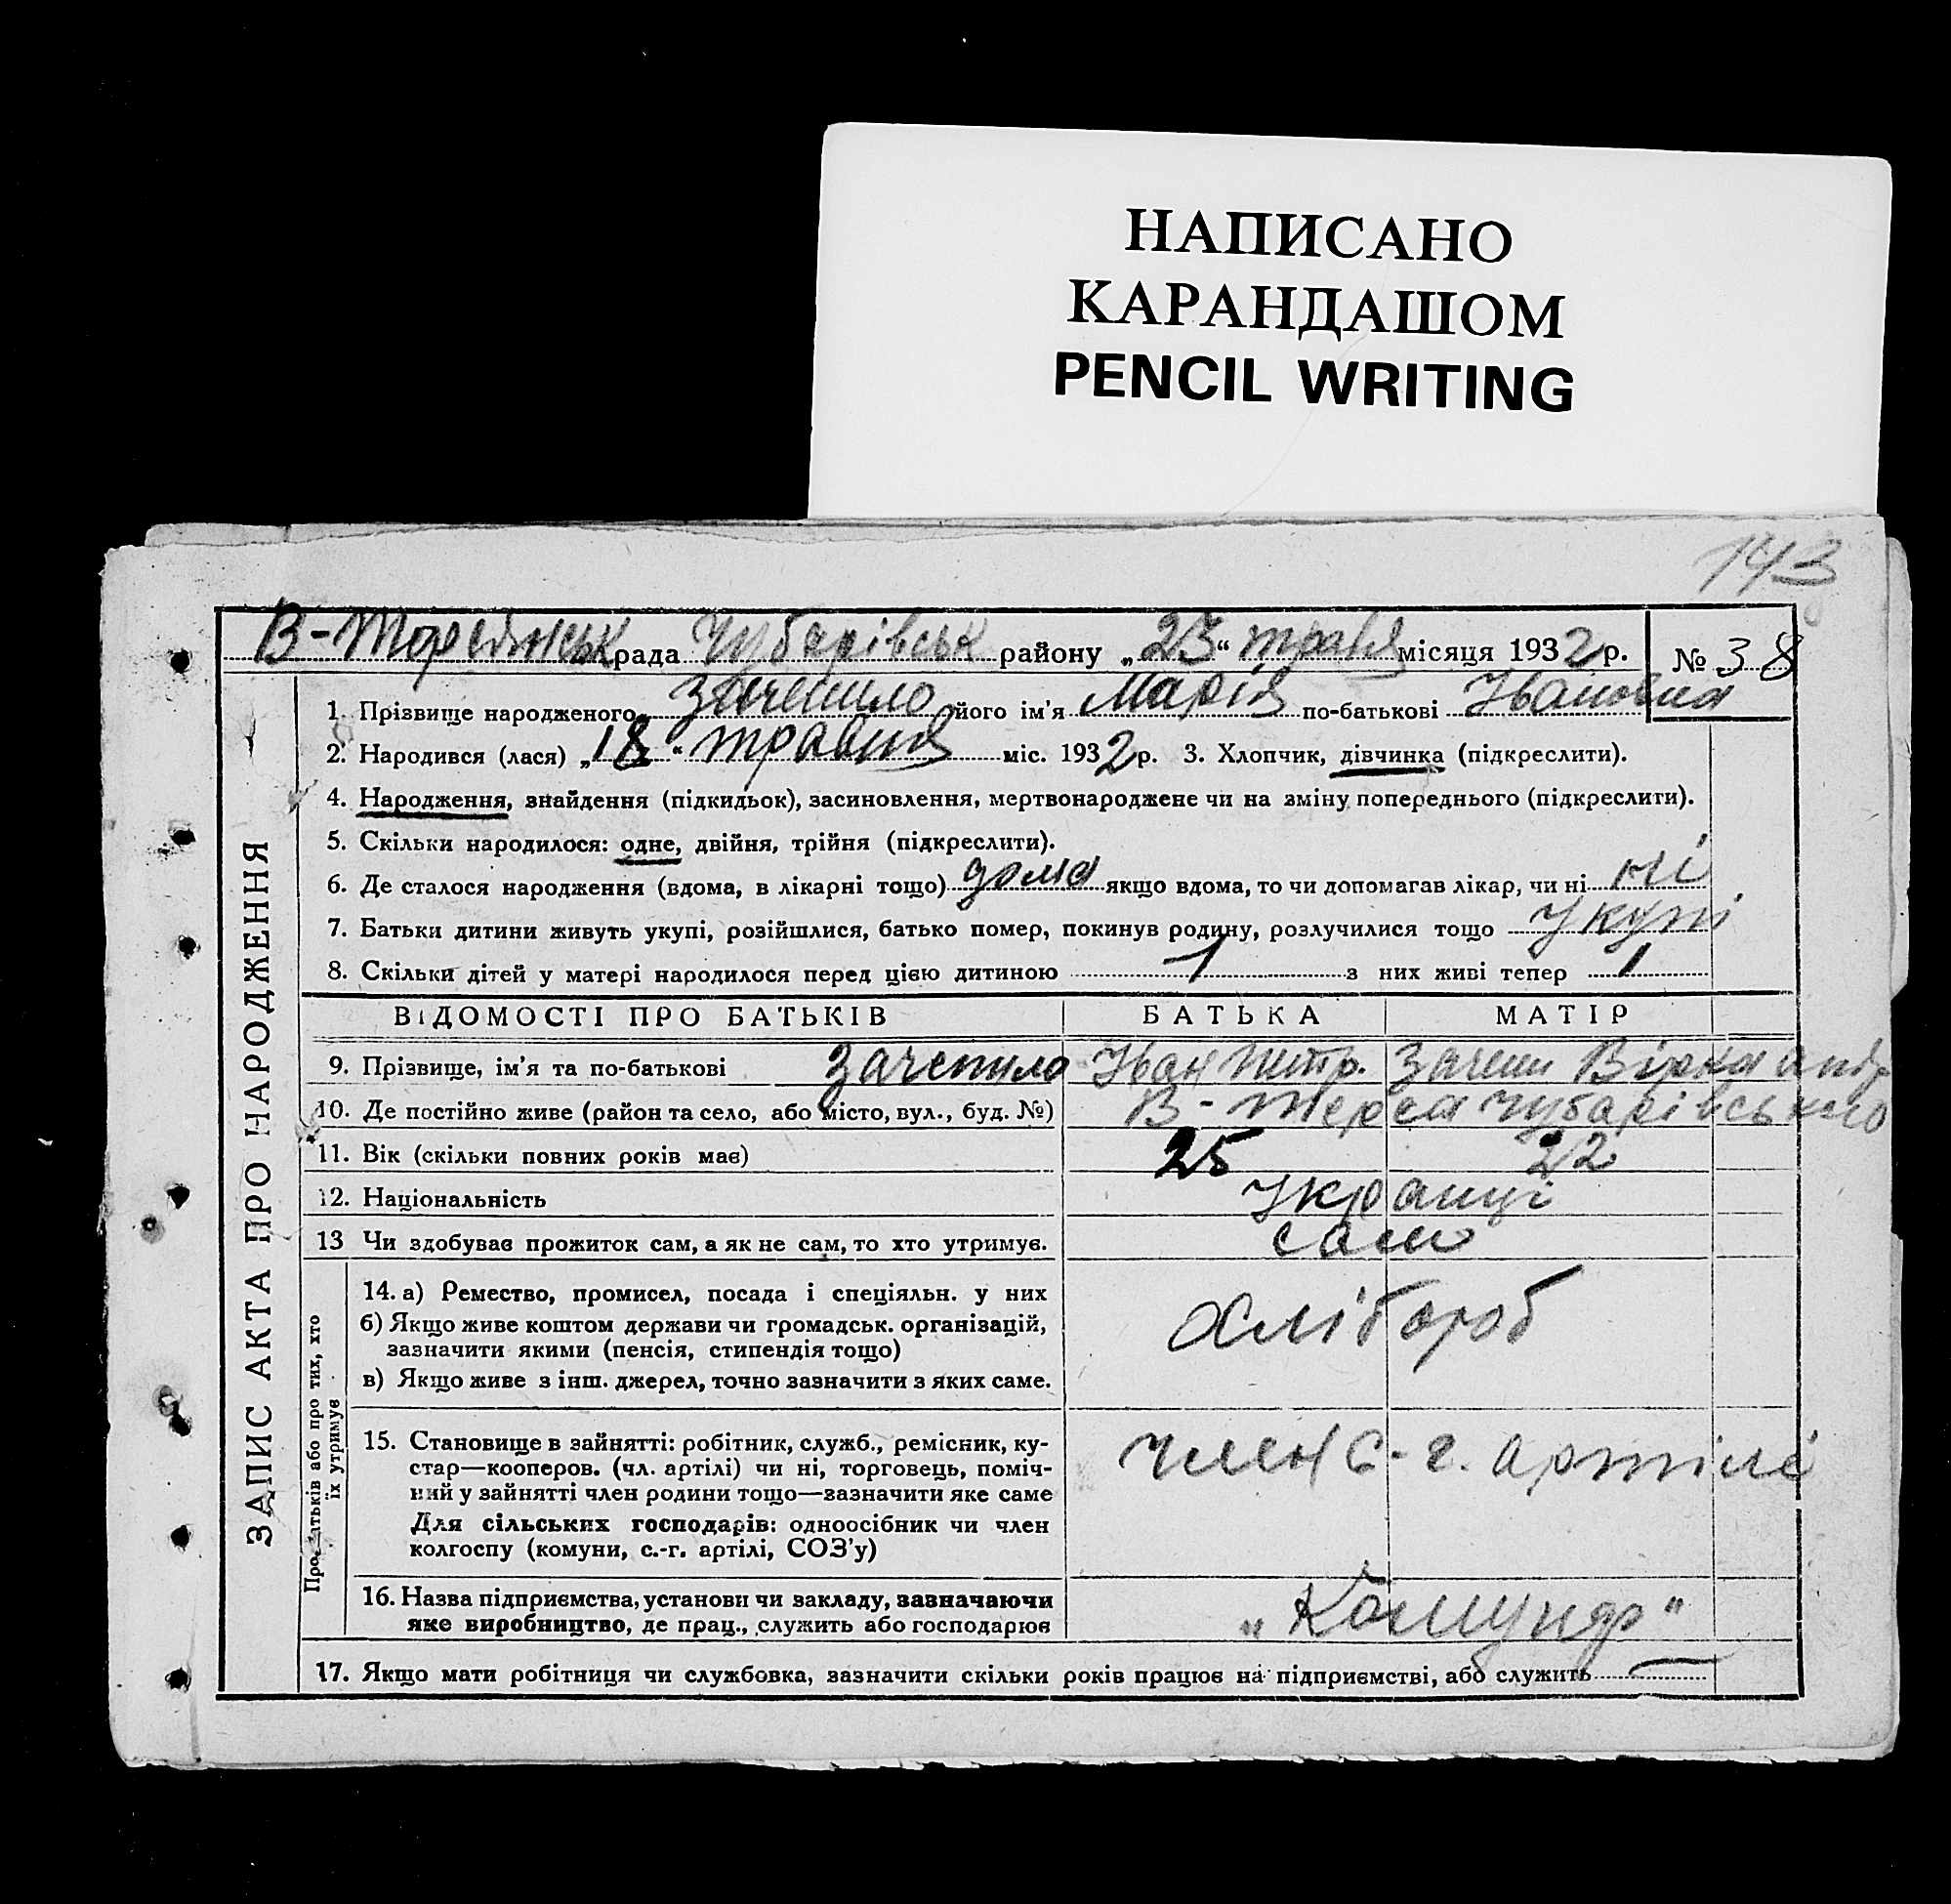 НАПИСАНО
КАРАНДАШОМ
PENCIL WRITING
143
В-Торсянськ рада Чубарівськ району „23“ травня місяця 1932 р. № 38
1 Прізвище народженого Зачепило його ім'я Марія по-батькові Івановна
2. Народився (лася) „18“ травня міс. 1932 р. 3. Хлопчик, дівчинка (підкреслити).
4. Народження, знайдення (підкидьок), засиновлення, мертвонароджене чи на зміну попереднього (підкреслити).
5. Скільки народилося: одне, двійня, трійня (підкреслити).
6. Де сталося народження (вдома, в лікарні тощо) дома якщо вдома, то чи допомагав лікар, чи ні ні
7. Батьки дитини живуть укупі, розійшлися, батько помер, покинув родину, розлучилися тощо укупі
8. Скільки дітей у матері народилося перед цією дитиною 1 з них живі тепер 1
ВІДОМОСТІ ПРО БАТЬКІВ БАТЬКА МАТІР
9. Прізвище, ім'я та по-батькові Зачепило Іван Петр. Зачепи Вірка
10. Де постійно живе (район та село, або місто, вул., буд. №) В-Терся Чубарівського
11. Вік (скільки повних років має) 25 22
12. Національність Україці
13 Чи здобуває прожиток сам, а як не сам, то хто утримує. само
14. а) Ремество, промисел, посада і спеціяльн. у них хлібороб
б) Якщо живе коштом держави чи громадськ. організацій,
зазначити якими (пенсія, стипендія тощо)
в) Якщо живе з інш. джерел, точно зазначити з яких саме.
15. Становище в зайнятті: робітник, служб., ремісник, ку-
стар—кооперов. (чл. артілі) чи ні, торговець, поміч- член с-г. артілі
ний у зайнятті член родини тощо—зазначити яке саме
Для сільських господарів: одноосібник чи член
колгоспу (комуни, с.-г. артілі, СОЗ'у)
16. Назва підприємства, установи чи закладу, зазначаючи „Комунар"
яке виробництво, де прац., служить або господарює
17. Якщо мати робітниця чи службовка, зазначити скільки років працює на підприємстві, або служить —
ЗАПИС АКТА ПРО НАРОДЖЕННЯ
Про батьків або про тих, хто
їх утримує